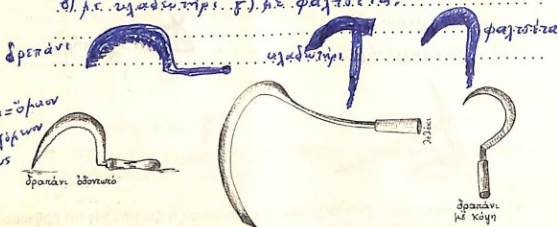 β) με κλαδευτήρι. γ) με φαλτσέτα.
δρεπάνι
κλαδευτήρι
φαλτσέτα
δραπάνι ὀδοντωτό
λελέκι
δραπάνι
μὲ κόψη